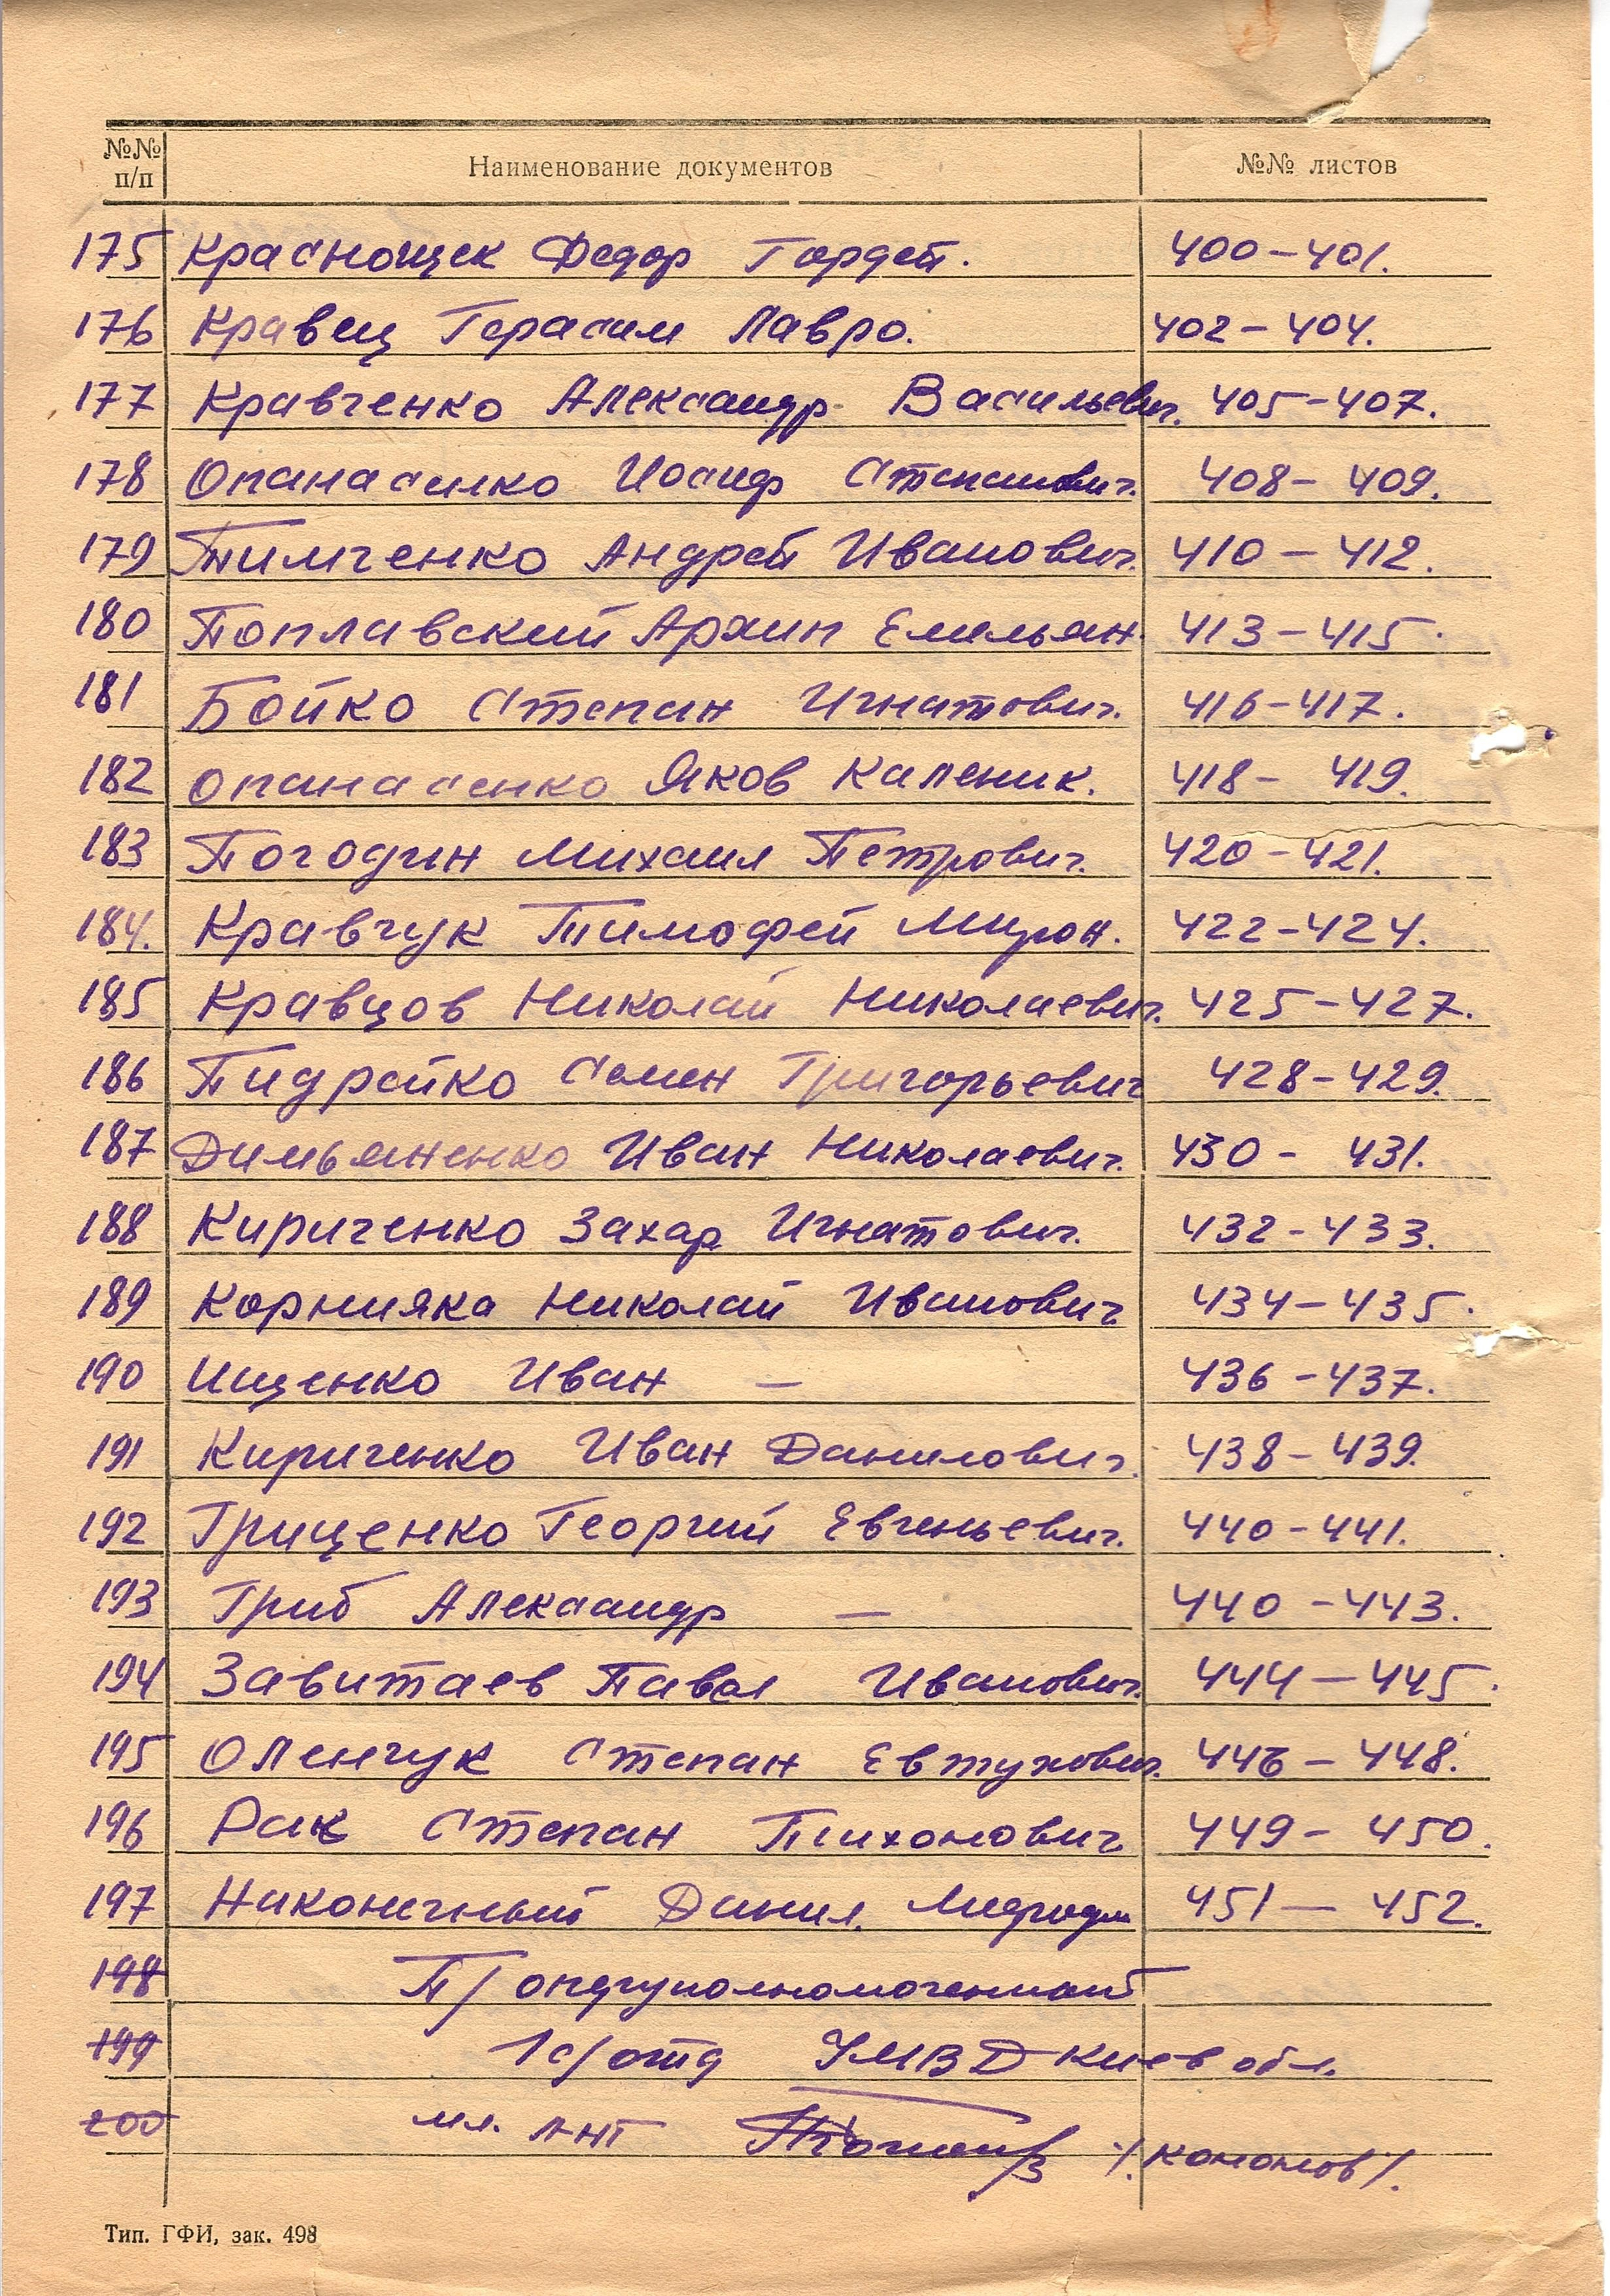 №№ п/п Наименование документов №№ листов
175 Краснощек Федор Гордей. 400-401.
176 Кравец Герасим Лавро. 402-404.
177 Кравченко Александр Васильевич. 405-407.
178 Опанасенко Иосиф Степанович. 408-409.
179 Тимченко Андрей Иванович. 410-412.
180 Поплавский Архип Емельян. 413-415.
181 Бойко Степан Игнатович. 416-417.
182 Опанасенко Яков Каленик. 418-419.
183 Погодин Михаил Петрович. 420-421.
184. Кравчук Тимофей Мирон. 422-424.
185 Кравцов Николай Николаевич. 425-427.
186 Пидрейко Семен Григорьевич 428-429.
187 Димьяненко Иван Николаевич. 430-431.
188 Кириченко Захар Игнатович. 432-433.
189 Корнияка Николай Иванович 434-435.
190 Ищенко Иван — 436-437.
191 Кириченко Иван Данилович. 438-439.
192 Гриценко Георгий Евгеньевич. 440-441.
193 Гриб Александр — 440-443.
194 Завитаев Павел Иванович. 444-445.
195 Оленчук Степан Евтухович. 446-448.
196 Рак Степан Тихонович 449-450.
197 Наконечный Данил. 451-452.
198 П/оперуполномоченный
199 1 с/отд УМВД Киев обл.
200 мл. л-нт /Кононов/.
Тип. ГФИ, зак. 498